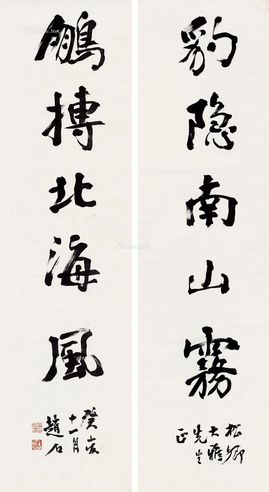 豹隐南山霧
松卿
大雅
先生
正
鵬摶北海風
癸亥
十一月
趙石